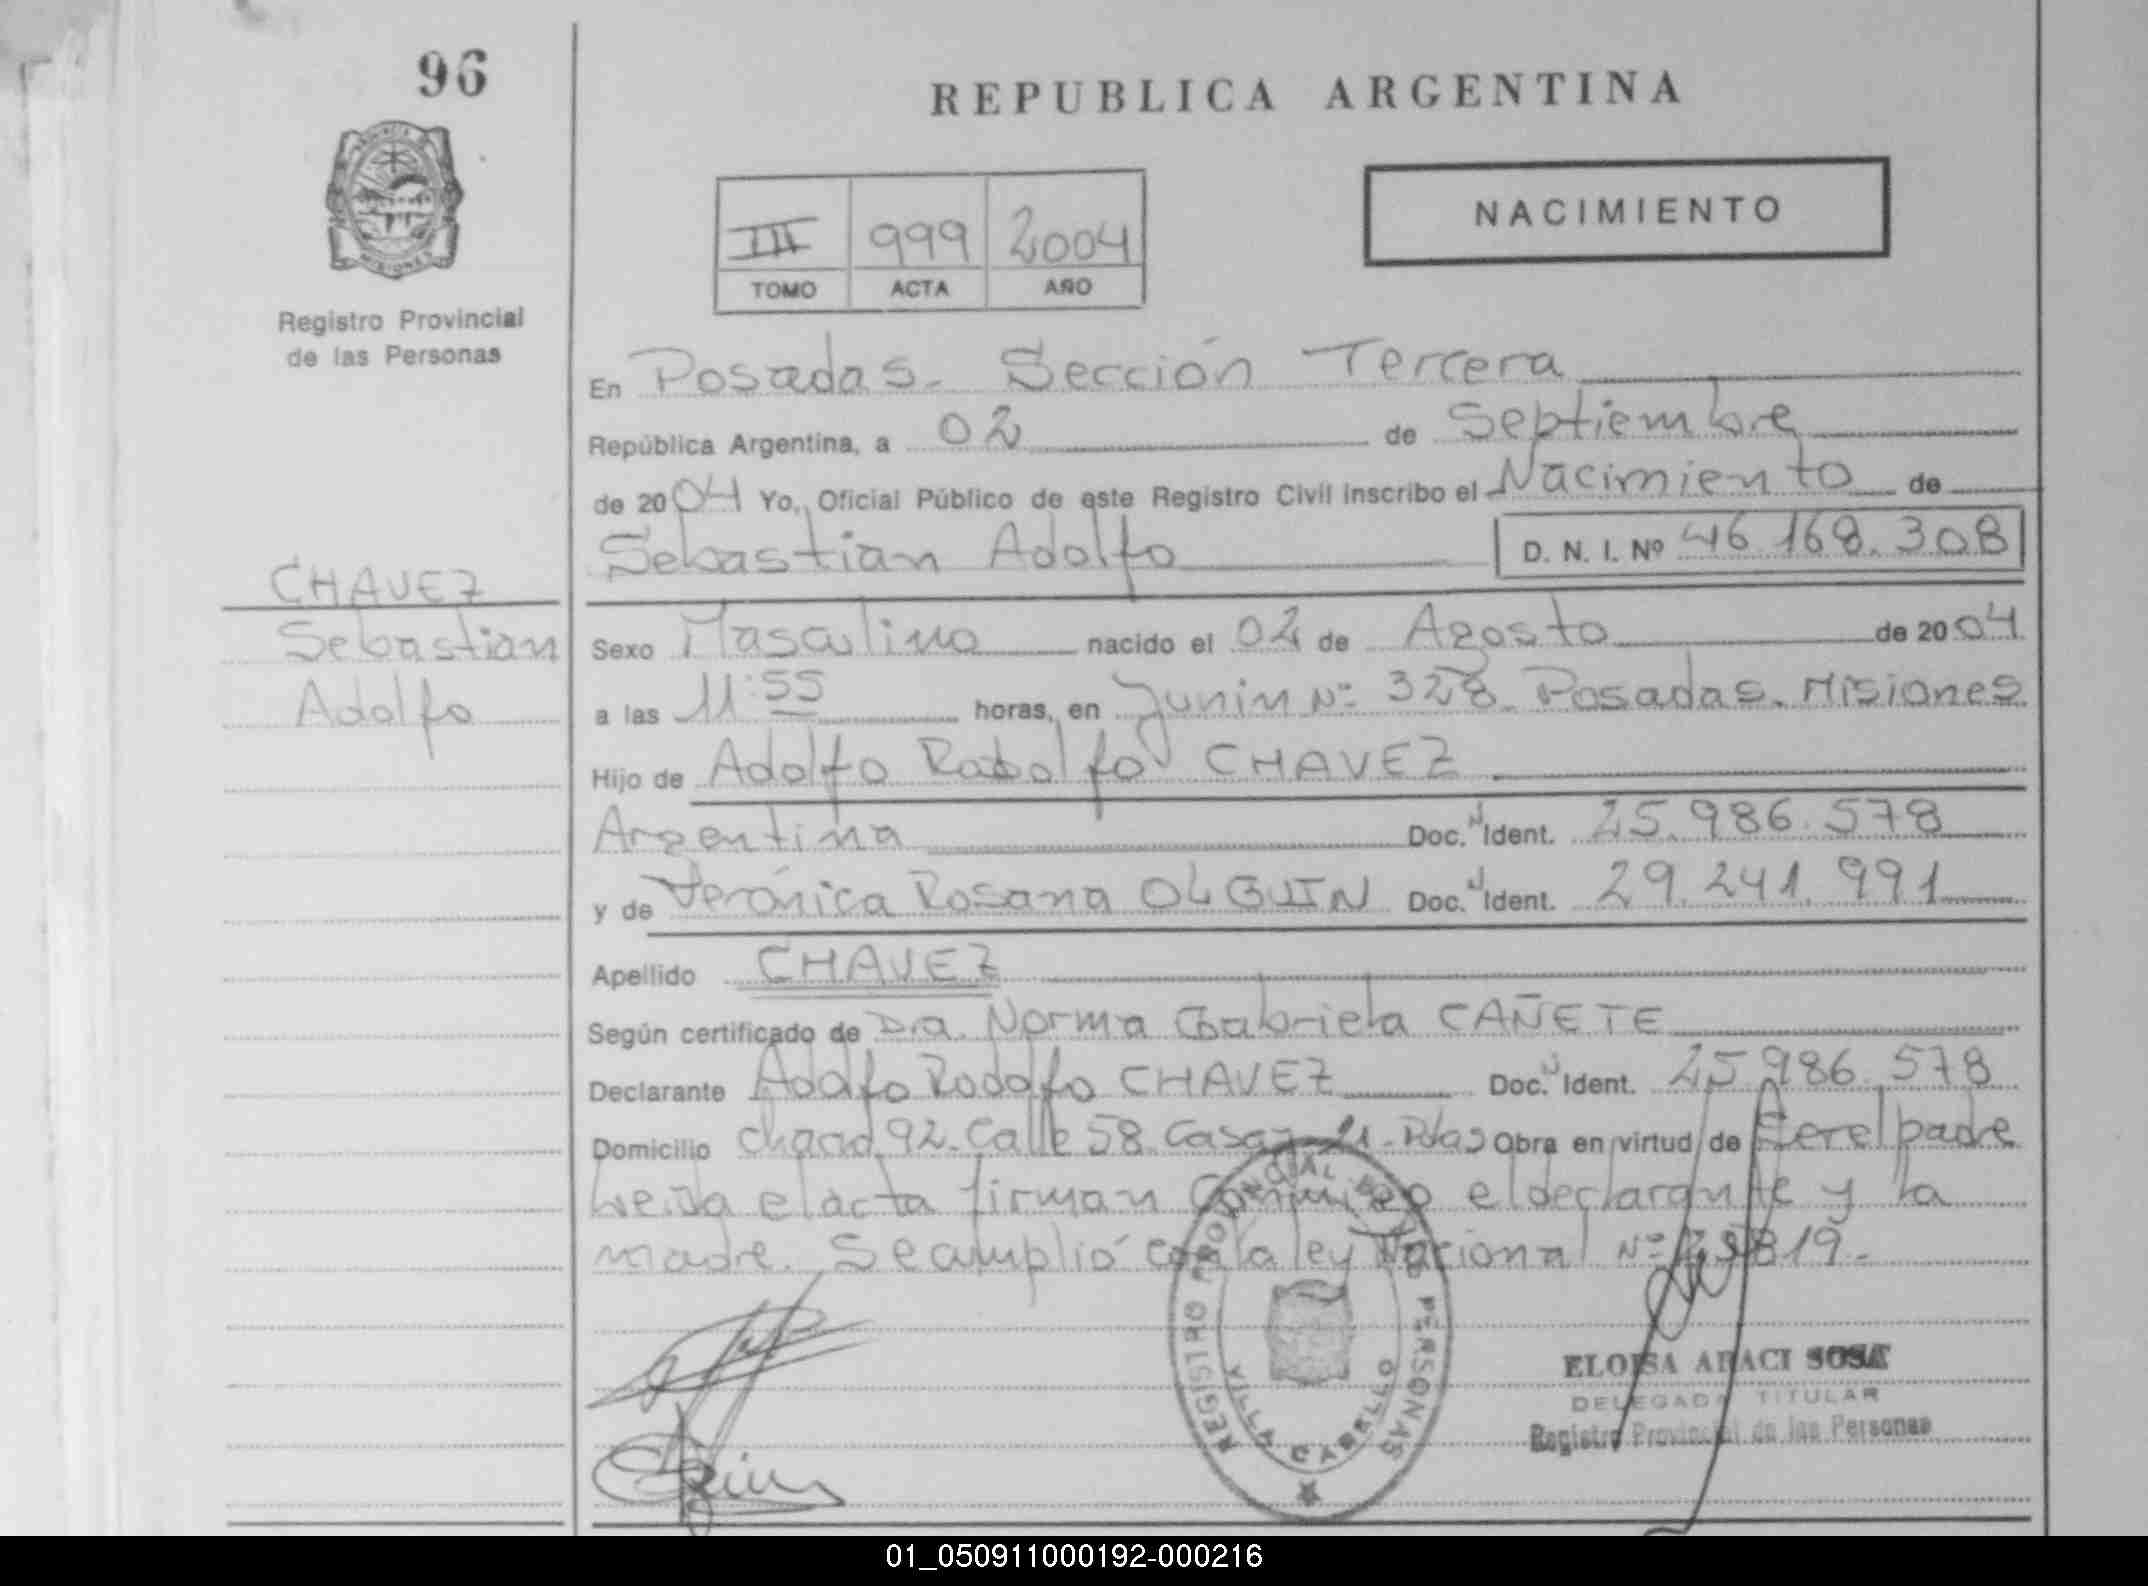 96
REPUBLICA ARGENTINA
NACIMIENTO
III 999 2004
TOMO ACTA AÑO
PROVINCIA
MISIONES
Registro Provincial
de las Personas
En Posadas. Sección Tercera
República Argentina, a 02 de Septiembre
de 2004 Yo, Oficial Público de este Registro Civil inscribo el Nacimiento de
Sebastian Adolfo D. N. I. Nº 46.168.308
CHAVEZ
Sebastian
Adolfo
Sexo Masculino nacido el 02 de Agosto de 2004
a las 11:55 horas, en Junin Nº 328. Posadas. Misiones
Hijo de Adolfo Rodolfo CHAVEZ
Argentina Doc. N Ident. 25.986.578
y de Verónica Rosana OLGUIN Doc. N Ident. 29.241.991
Apellido CHAVEZ
Según certificado de Dra. Norma Gabriela CAÑETE
Declarante Adolfo Rodolfo CHAVEZ Doc. N Ident. 25.986.578
Domicilio Chacra 92. Calle 58. Casa 21. Pdas Obra en virtud de Ser el padre
Leida el acta firman Conmigo el declarante y la
madre. Se amplió con la ley Nacional Nº
REGISTRO PROVINCIAL DE LAS PERSONAS
VILLA CABELLO
ELOISA ARACI SOSA
DELEGADA TITULAR
Registro Provincial de las Personas
01_050911000192-000216